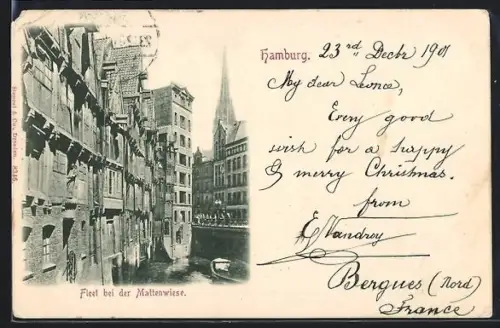 Hamburg. 23rd Decbr 1901
My dear Leonce,
Every good
wish for a happy
& merry Christmas.
from
E. Vandroy
Bergues (Nord)
France
Fleet bei der Mattenwiese.